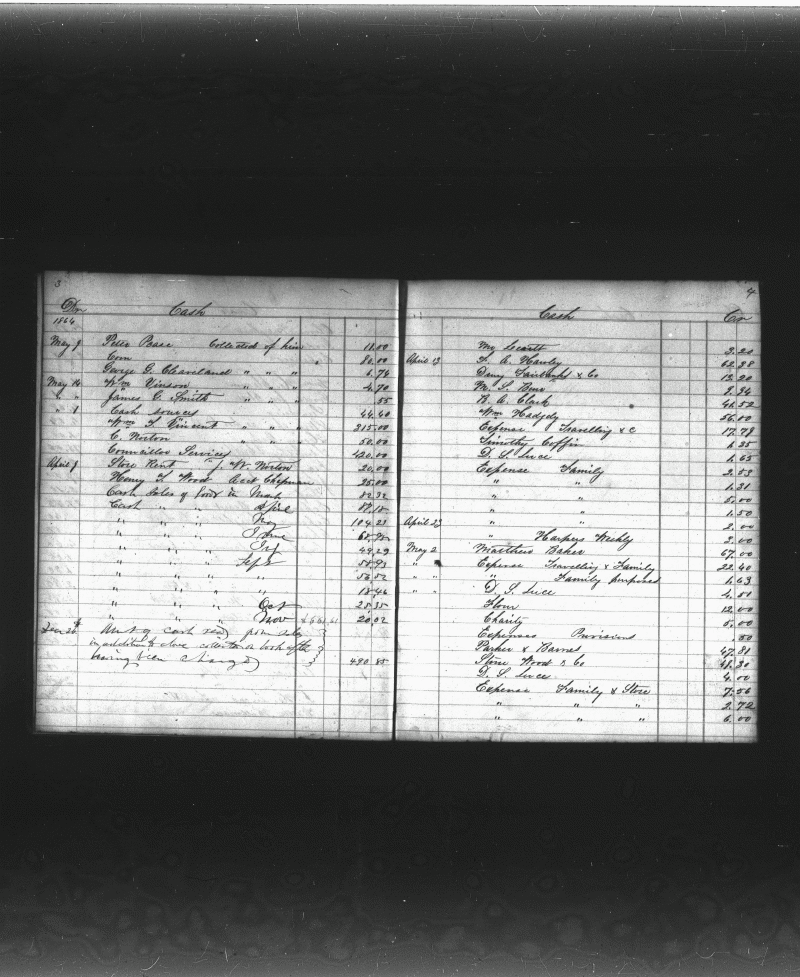 3
Dr Cash
1864
May 9 Peter Pease Collected of him 11.00
Corn 80.00
George G. Cleaveland " " " 6.74
May 14 Wm Vinson " " " 4.70
" " James C. Smith " " " .55
" " Cash sources 44.40
Wm T. Vincent " " " 215.00
C. Norton " " 50.00
Councillor Services 420.00
April 9 Store Rent W. Norton 20.00
Henry T. Wood Chapman 25.00
Cash Sales of Goods in March 82.32
Cash " " April 87.18
" " " May 104.23
" " " June
" " " 49.29
" " " Sept
" " " "
" " " " 18.46
" " " Oct 25.35
" " " Nov 20.02
Amt of cash from sales
in addition to above collected on book after
having been charged 490.85
4
Cash Cr
3.20
April 13 F. A. Hawley 62.38
Dany Fairbanks & Co 13.20
M. S. Burr 9.34
R. A. Clark 41.52
Wm Hadgdy 56.00
Expense Travelling &c 17.79
Timothy Coffin 1.25
D. S. Luce 1.65
Expense Family 2.53
" " 1.31
" " 5.00
" " 1.50
April 23 " " 2.00
" Harpers Weekly 2.00
May 2 Matthew Baker 67.00
" " Expense Travelling & Family 22.40
" " " Family purposes 1.63
" " D. S. Luce 4.51
Flour 12.00
Charity 5.00
Expenses Provisions .50
Parker & Barnes 47.81
Stone Wood & Co 41.30
D. S. Luce 4.00
Expense Family & Store 7.56
" " " 2.72
" " " 6.00